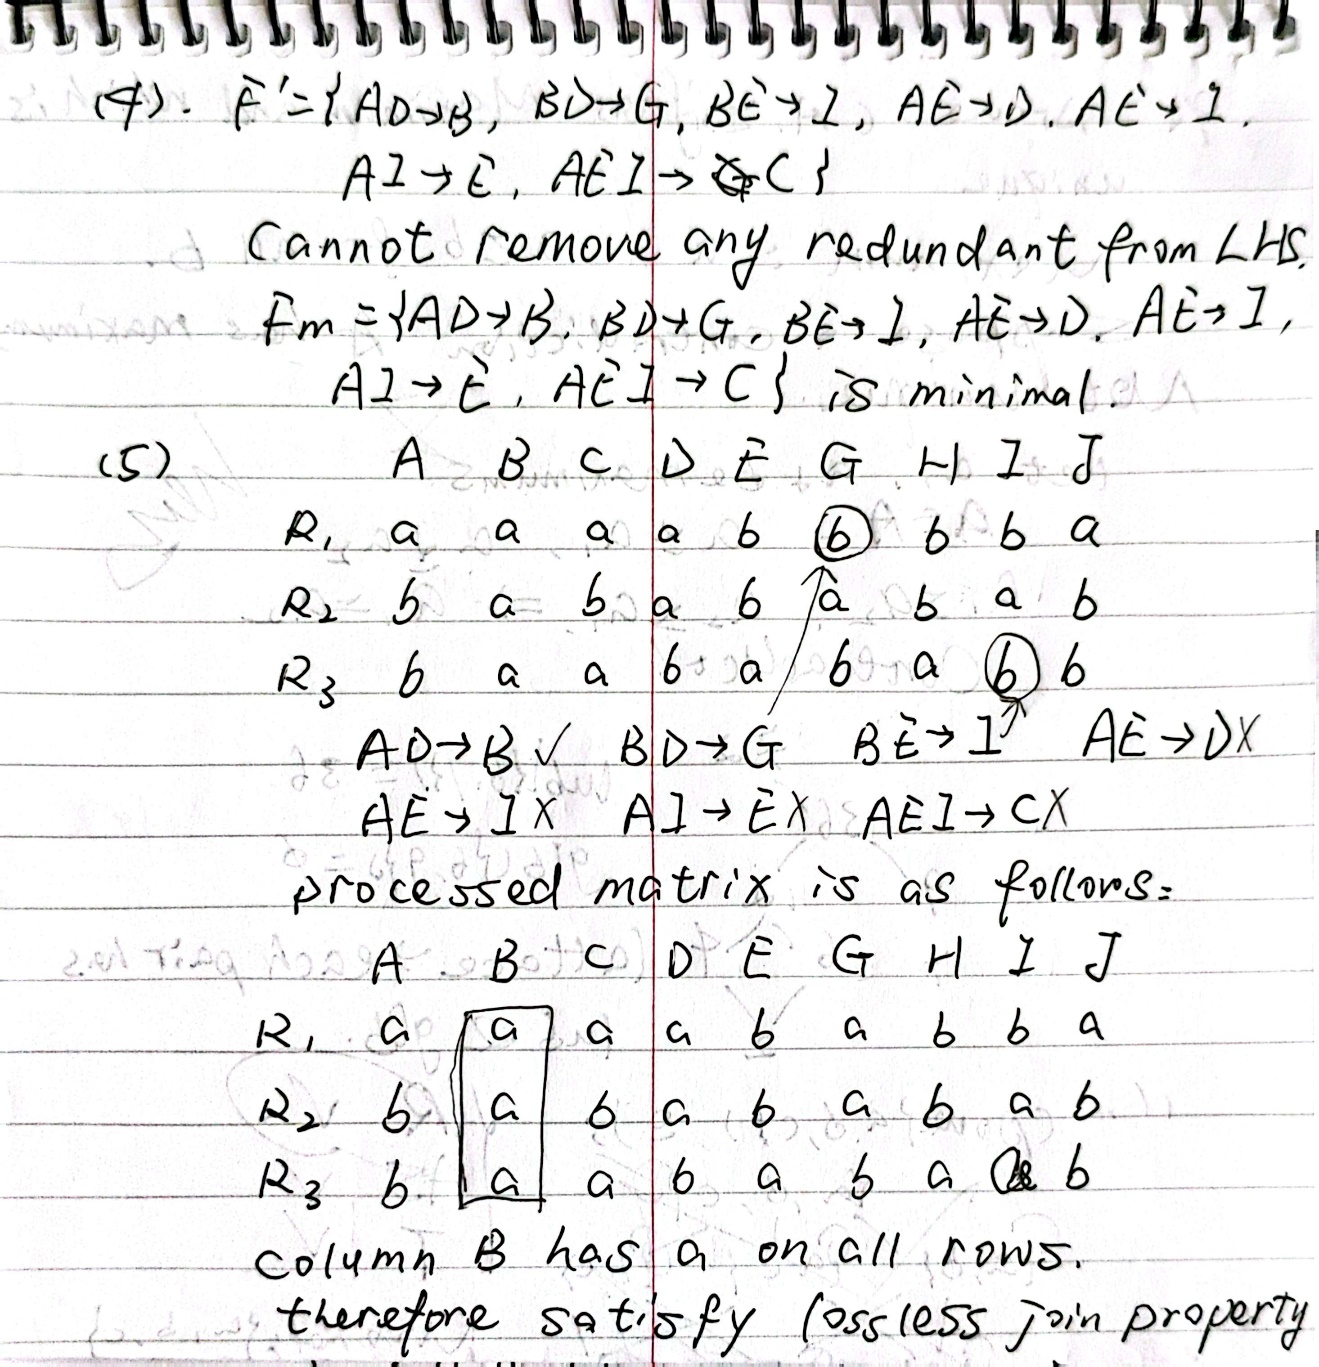 (4). F'={AD→B, BD→G, BE→I, AE→D, AE→I,
AI→E, AEI→C}
Cannot remove any redundant from LHS.
Fm={AD→B, BD→G, BE→I, AE→D, AE→I,
AI→E, AEI→C} is minimal.
(5) A B C D E G H I J
R1 a a a a b b b b a
R2 b a b a b a b a b
R3 b a a b a b a b b
AD→B✓ BD→G BE→I AE→DX
AE→IX AI→EX AEI→CX
processed matrix is as follows:
A B C D E G H I J
R1 a a a a b a b b a
R2 b a b a b a b a b
R3 b a a b a b a b
column B has a on all rows.
therefore satisfy lossless join property